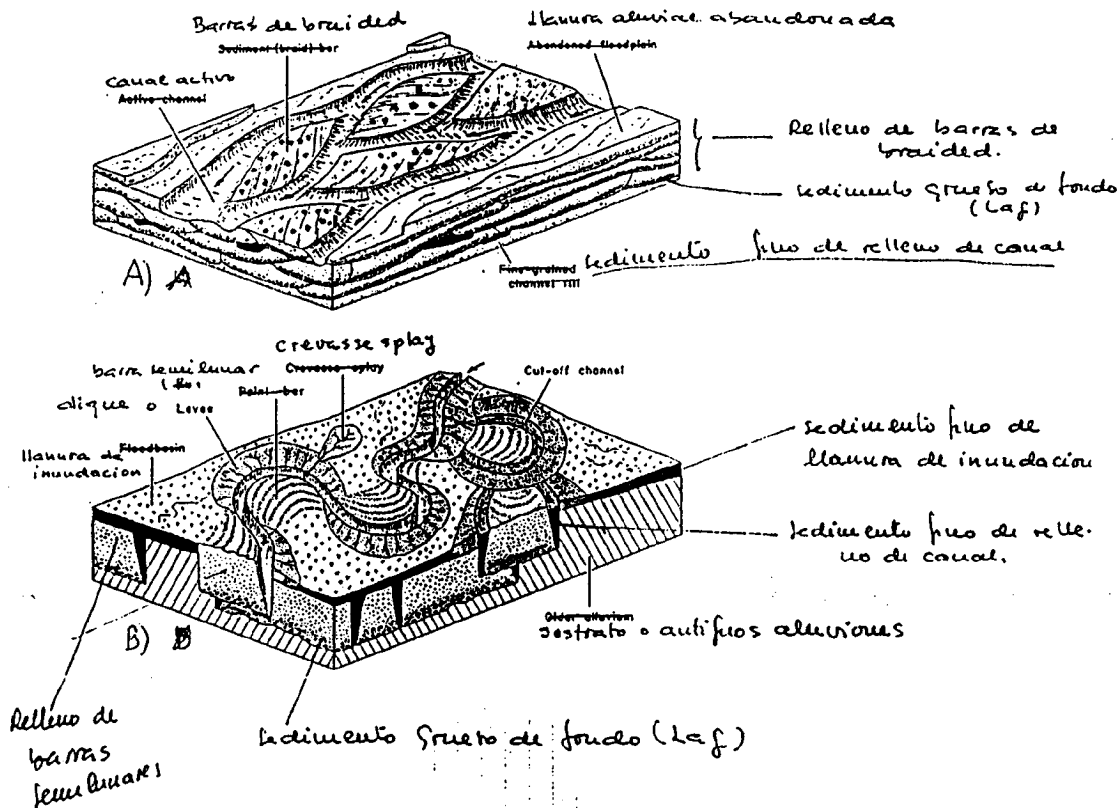 Barras de braided
Sediment (braid) bar
llanura aluvial abandonada
Abandoned floodplain
canal activo
Active channel
Relleno de barras de
braided.
sedimento grueso de fondo
(Lag)
Fine-grained
channel fill
sedimento fino de relleno de canal
A) A
crevasse splay
Crevasse splay
barra semilunar
Point bar
dique o Levee
Cut-off channel
llanura de
inundación
Floodbasin
sedimento fino de
llanura de inundación
sedimento fino de relle-
no de canal.
Older alluvium
sostrato o antiguos aluviones
B) B
Relleno de
barras
semilunares
sedimento grueso de fondo (Lag)